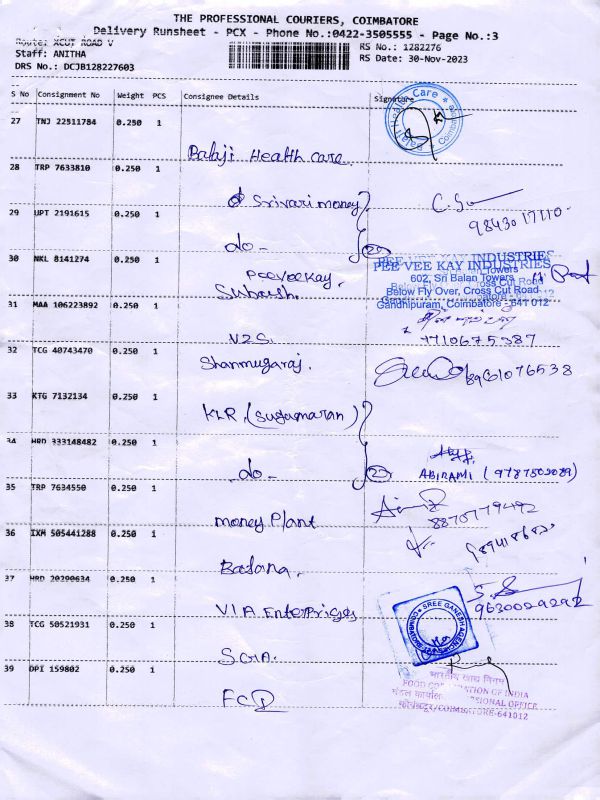 THE PROFESSIONAL COURIERS, COIMBATORE
Delivery Runsheet - PCX - Phone No.:0422-3505555 - Page No.:3
Route: XCUT ROAD V
RS No.: 1282276
Staff: ANITHA
RS Date: 30-Nov-2023
DRS No.: DCJB128227603
S No Consignment No Weight PCS Consignee Details Signature
27 TNJ 22511784 0.250 1
Balaji Health care
Balaji Health Care Coimbatore
28 TRP 7633810 0.250 1
Srivari money
984301
29 UPT 2191615 0.250 1
do-
30 NKL 8141274 0.250 1
PEEVEEKAY.
Subash.
PEE VEE KAY INDUSTRIES
PEE VEE KAY INDUSTRIES
602, Sri Balan Towers
Below Fly Over, Cross Cut Road
Gandhipuram, Coimbatore - 641 012
31 MAA 106223892 0.250 1
V2S.
7710675387
32 TCG 40743470 0.250 1
Shanmugaraj.
33 KTG 7132134 0.250 1
KLR
34 HRD 333148482 0.250 1
do-
ABIRAMI (9787502089)
35 TRP 7634550 0.250 1
money Plant
8870779492
36 IXM 505441288 0.250 1
37 HRD 20290634 0.250 1
VIA Enterprises
9630029292
38 TCG 50521931 0.250 1
S.G.A.
SREE GANESH AGENCIES COIMBATORE
39 DPI 159802 0.250 1
FCI
भारतीय खाद्य निगम
FOOD CORPORATION OF INDIA
मंडल कार्यालय DIVISIONAL OFFICE
कोयंबटूर/COIMBATORE-641012